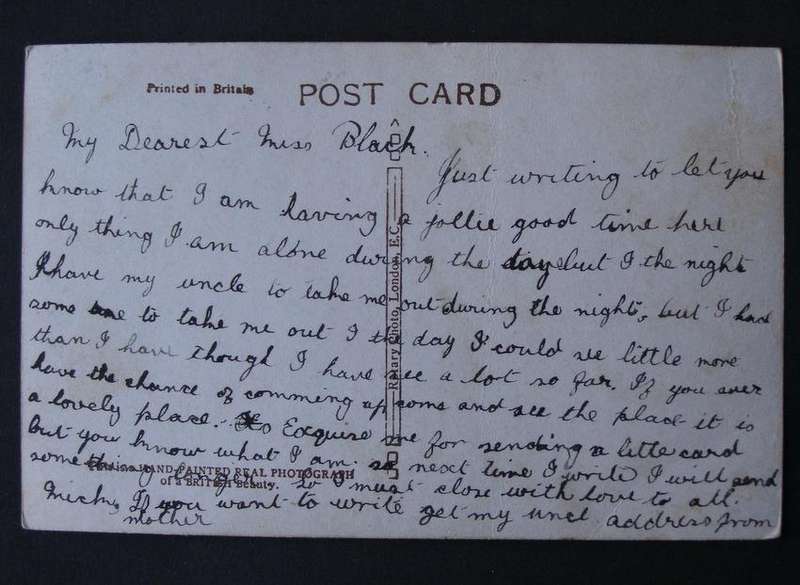 Printed in Britain
POST CARD
My Dearest Miss Black.
Just writing to let you
know that I am having a jollie good time here
only thing I am alone during the day but I the night
I have my uncle to take me out during the night, but I had
some one to take me out I the day I could see little more
than I have though I have see a lot so far. If you ever
have the chance of comming up come and see the place it is
a lovely place. Exquise me for sending a little card
but you know what I am. so next time I write I will send
something so I must close with love to all.
Mick. If you want to write get my uncl address from
mother
Rotary Photo, London, E.C.
HAND-PAINTED REAL PHOTOGRAPH
of a BRITISH Beauty.